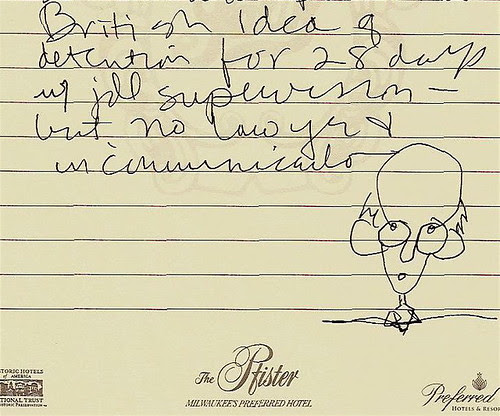 British idea of
detention for 28 days
w/ jdl supervision –
but no lawyer &
incommunicado
STORIC HOTELS
of AMERICA
TIONAL TRUST
The Pfister
MILWAUKEE'S PREFERRED HOTEL
Preferred
HOTELS & RESOR